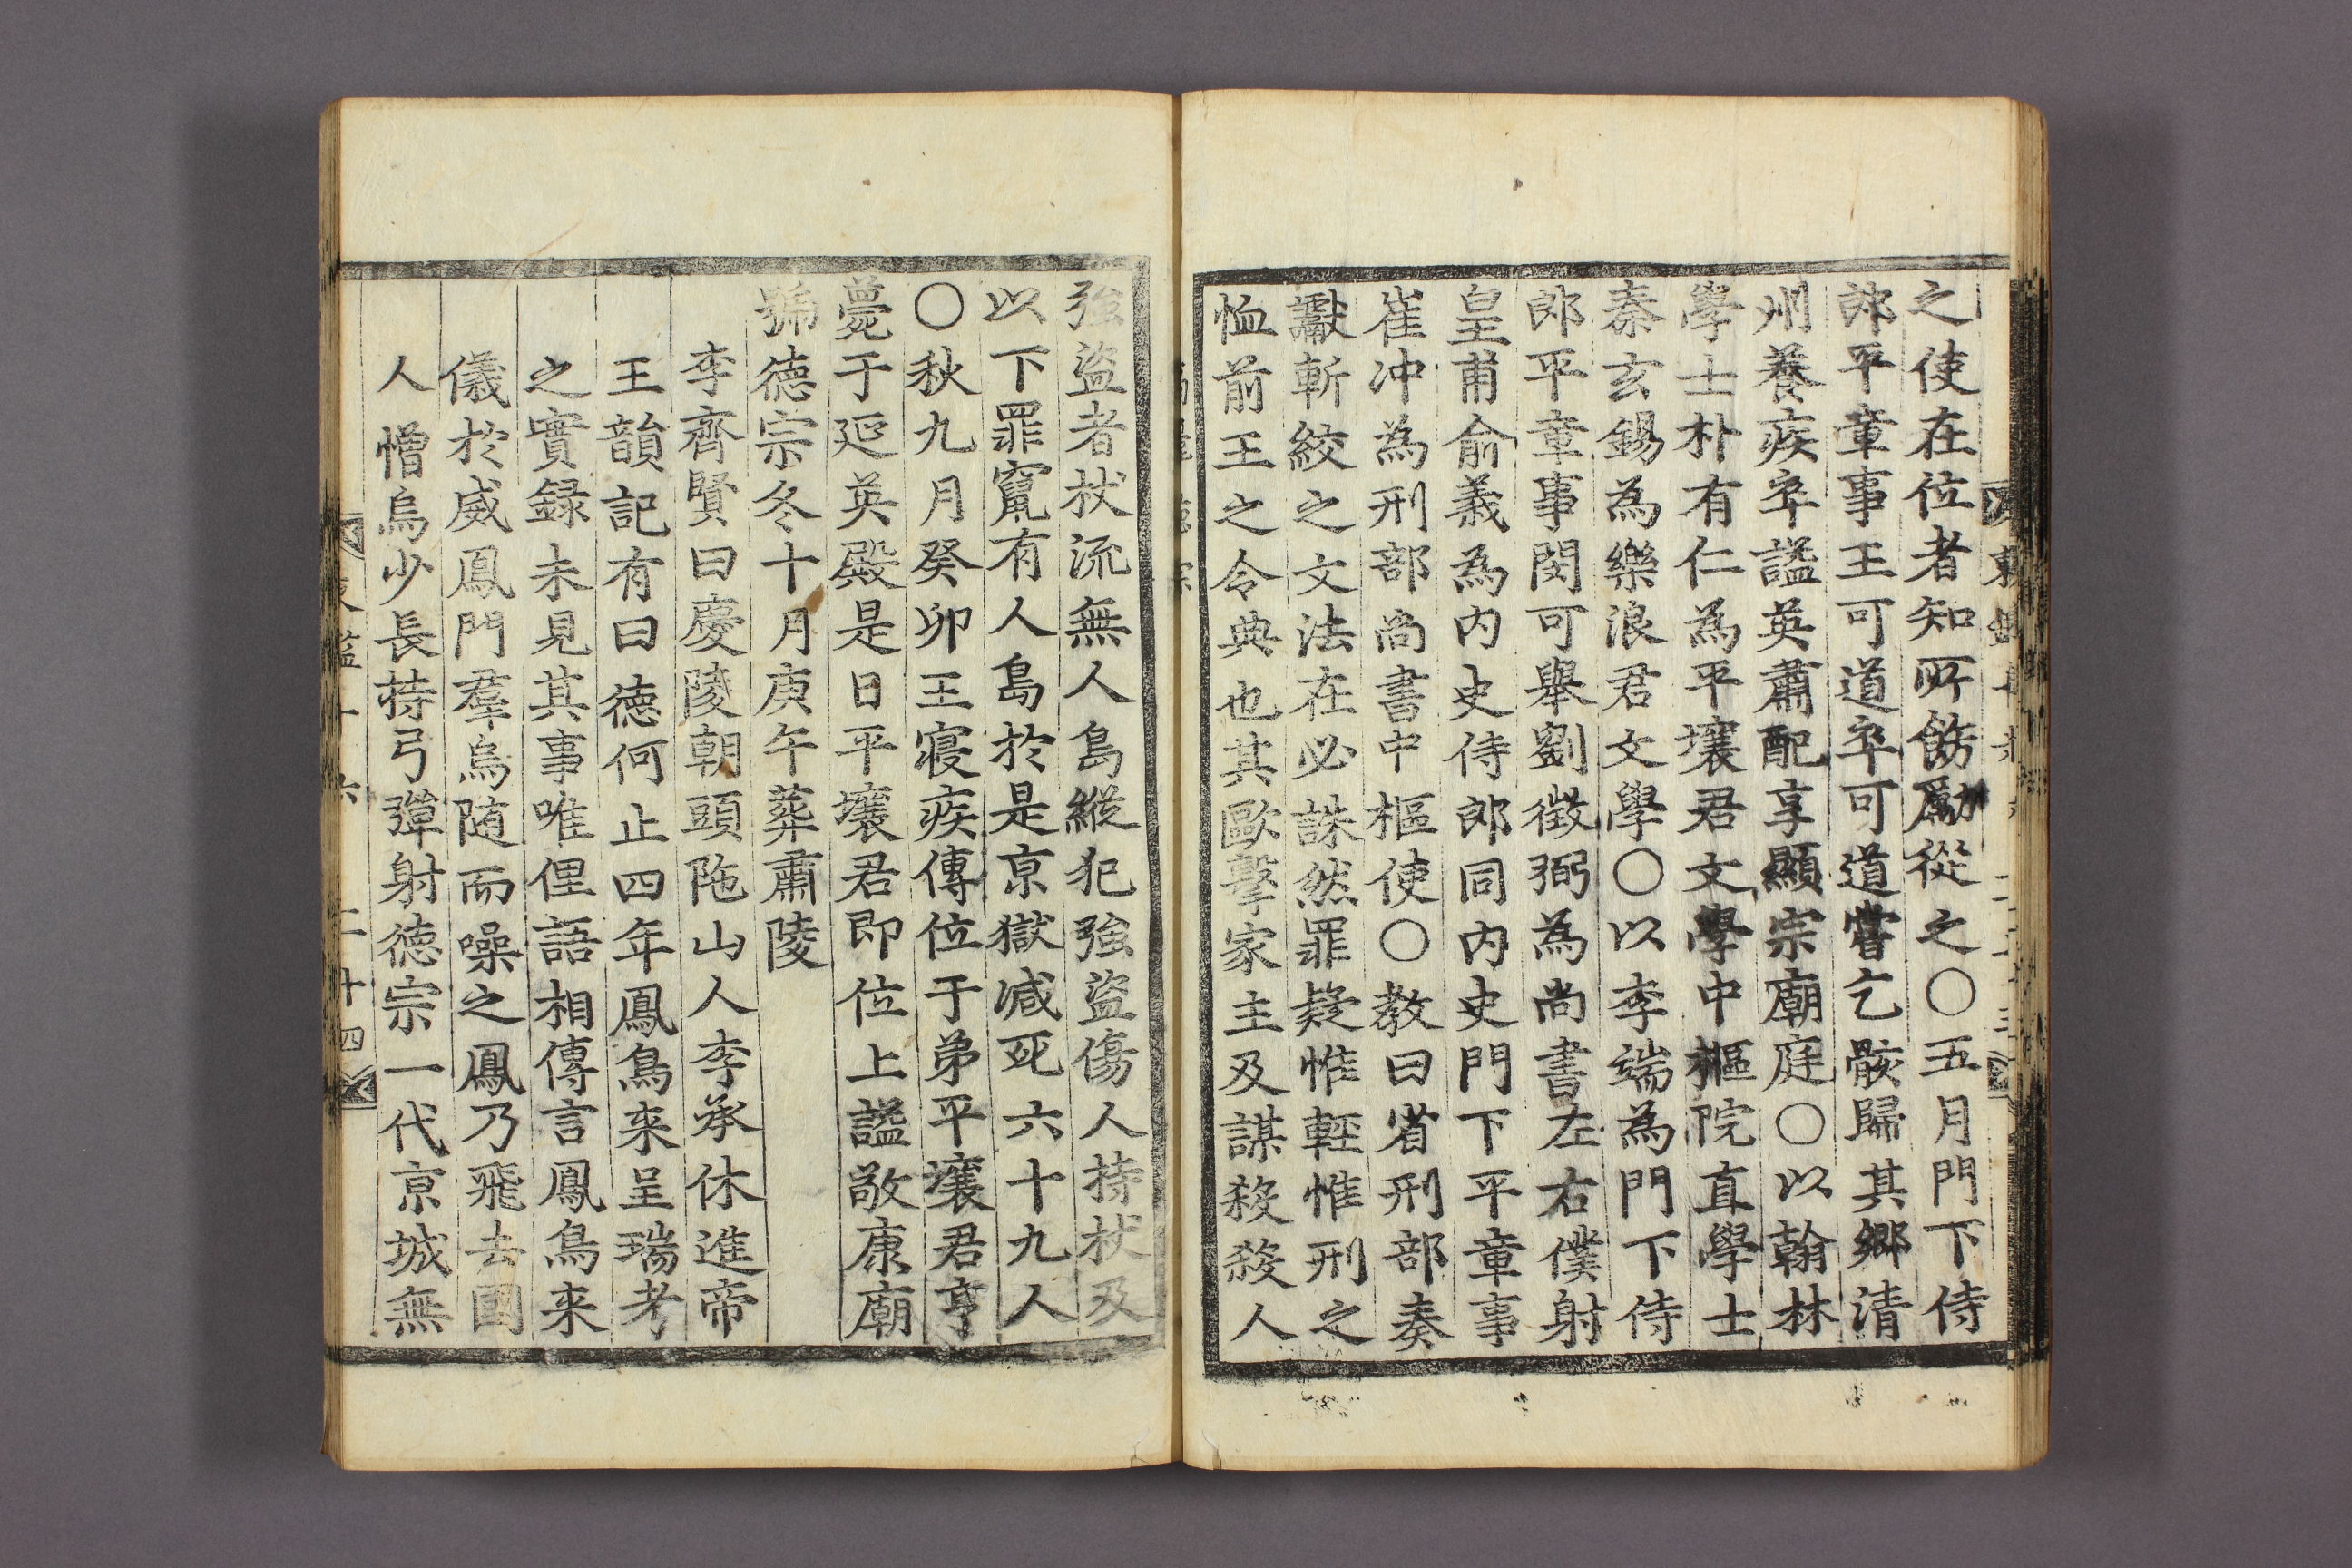 之使在位者知所飭勵從之〇五月門下侍
郎平章事王可道卒可道嘗乞骸歸其鄉清
州養疾卒謚英肅配享顯宗廟庭〇以翰林
學士朴有仁爲平壤君文學中樞院直學士
秦玄錫爲樂浪君文學〇以李端爲門下侍
郎平章事閔可舉劉徵弼爲尚書左右僕射
皇甫俞義爲内史侍郎同内史門下平章事
崔冲爲刑部尚書中樞使〇教曰省刑部奏
讞斬絞之文法在必誅然罪疑惟輕惟刑之
恤前王之令典也其歐擊家主及謀殺殺人
強盜者杖流無人島縱犯強盜傷人持杖及
以下罪竄有人島於是京獄减死六十九人
〇秋九月癸卯王寢疾傳位于弟平壤君亨
薨于延英殿是日平壤君即位上謚敬康廟
號德宗冬十月庚午葬肅陵
李齊賢曰慶陵朝頭陁山人李承休進帝
王韻記有曰德何止四年鳳鳥来呈瑞考
之實録未見其事唯俚語相傳言鳳鳥来
儀於威鳳門羣烏随而噪之鳳乃飛去國
人憎烏少長持弓彈射德宗一代京城無
十六
二十四